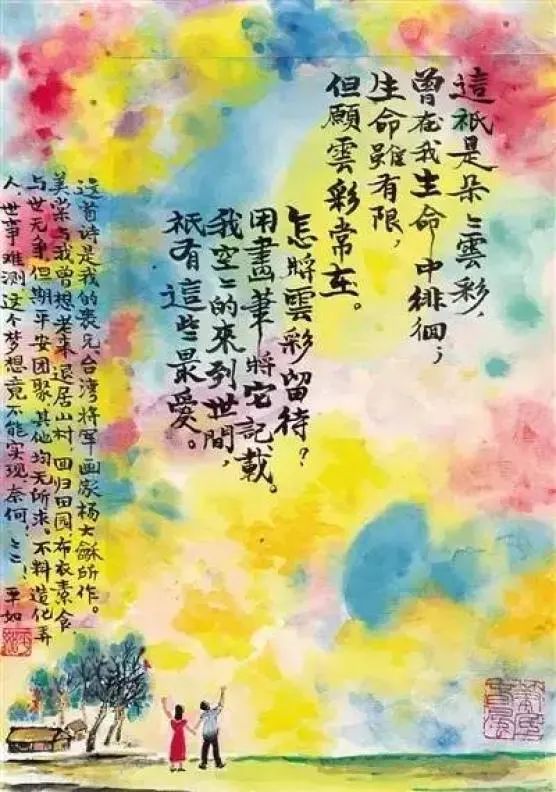 這祇是朵々雲彩,
曾在我生命中徘徊;
生命雖有限,
但願雲彩常在。
怎將雲彩留待?
用畫筆將它記載。
我空々的來到世間,
祇有這些最愛。
这首诗是我的表兄台湾将军画家杨大龢所作。
美棠与我曾想老来退居山村,回归田园布衣素食,
与世无争但期平安团聚其他均无所求。不料造化弄
人世事难测这个梦想竟不能实现奈何!々々! 平如